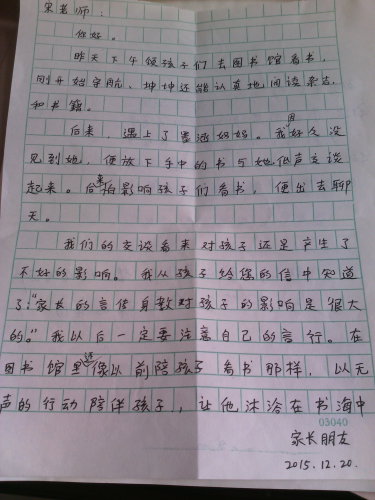 宋老师：
你好。
昨天下午领孩子们去图书馆看书，
刚开始宇航、坤坤还能认真地阅读杂志
和书籍。
后来，遇上了墨涵妈妈。我因好久没
见到她，便放下手中的书与她低声交谈
起来。后来怕影响孩子们看书，便出去聊
天。
我们的交谈看来对孩子还是产生了
不好的影响。我从孩子给您的信中知道
了：“家长的言传身教对孩子的影响是很大
的。”我以后一定要注意自己的言行。在
图书馆里还像以前陪孩子看书那样，以无
声的行动陪伴孩子，让他沐浴在书海中
03040
家长朋友
2015.12.20.